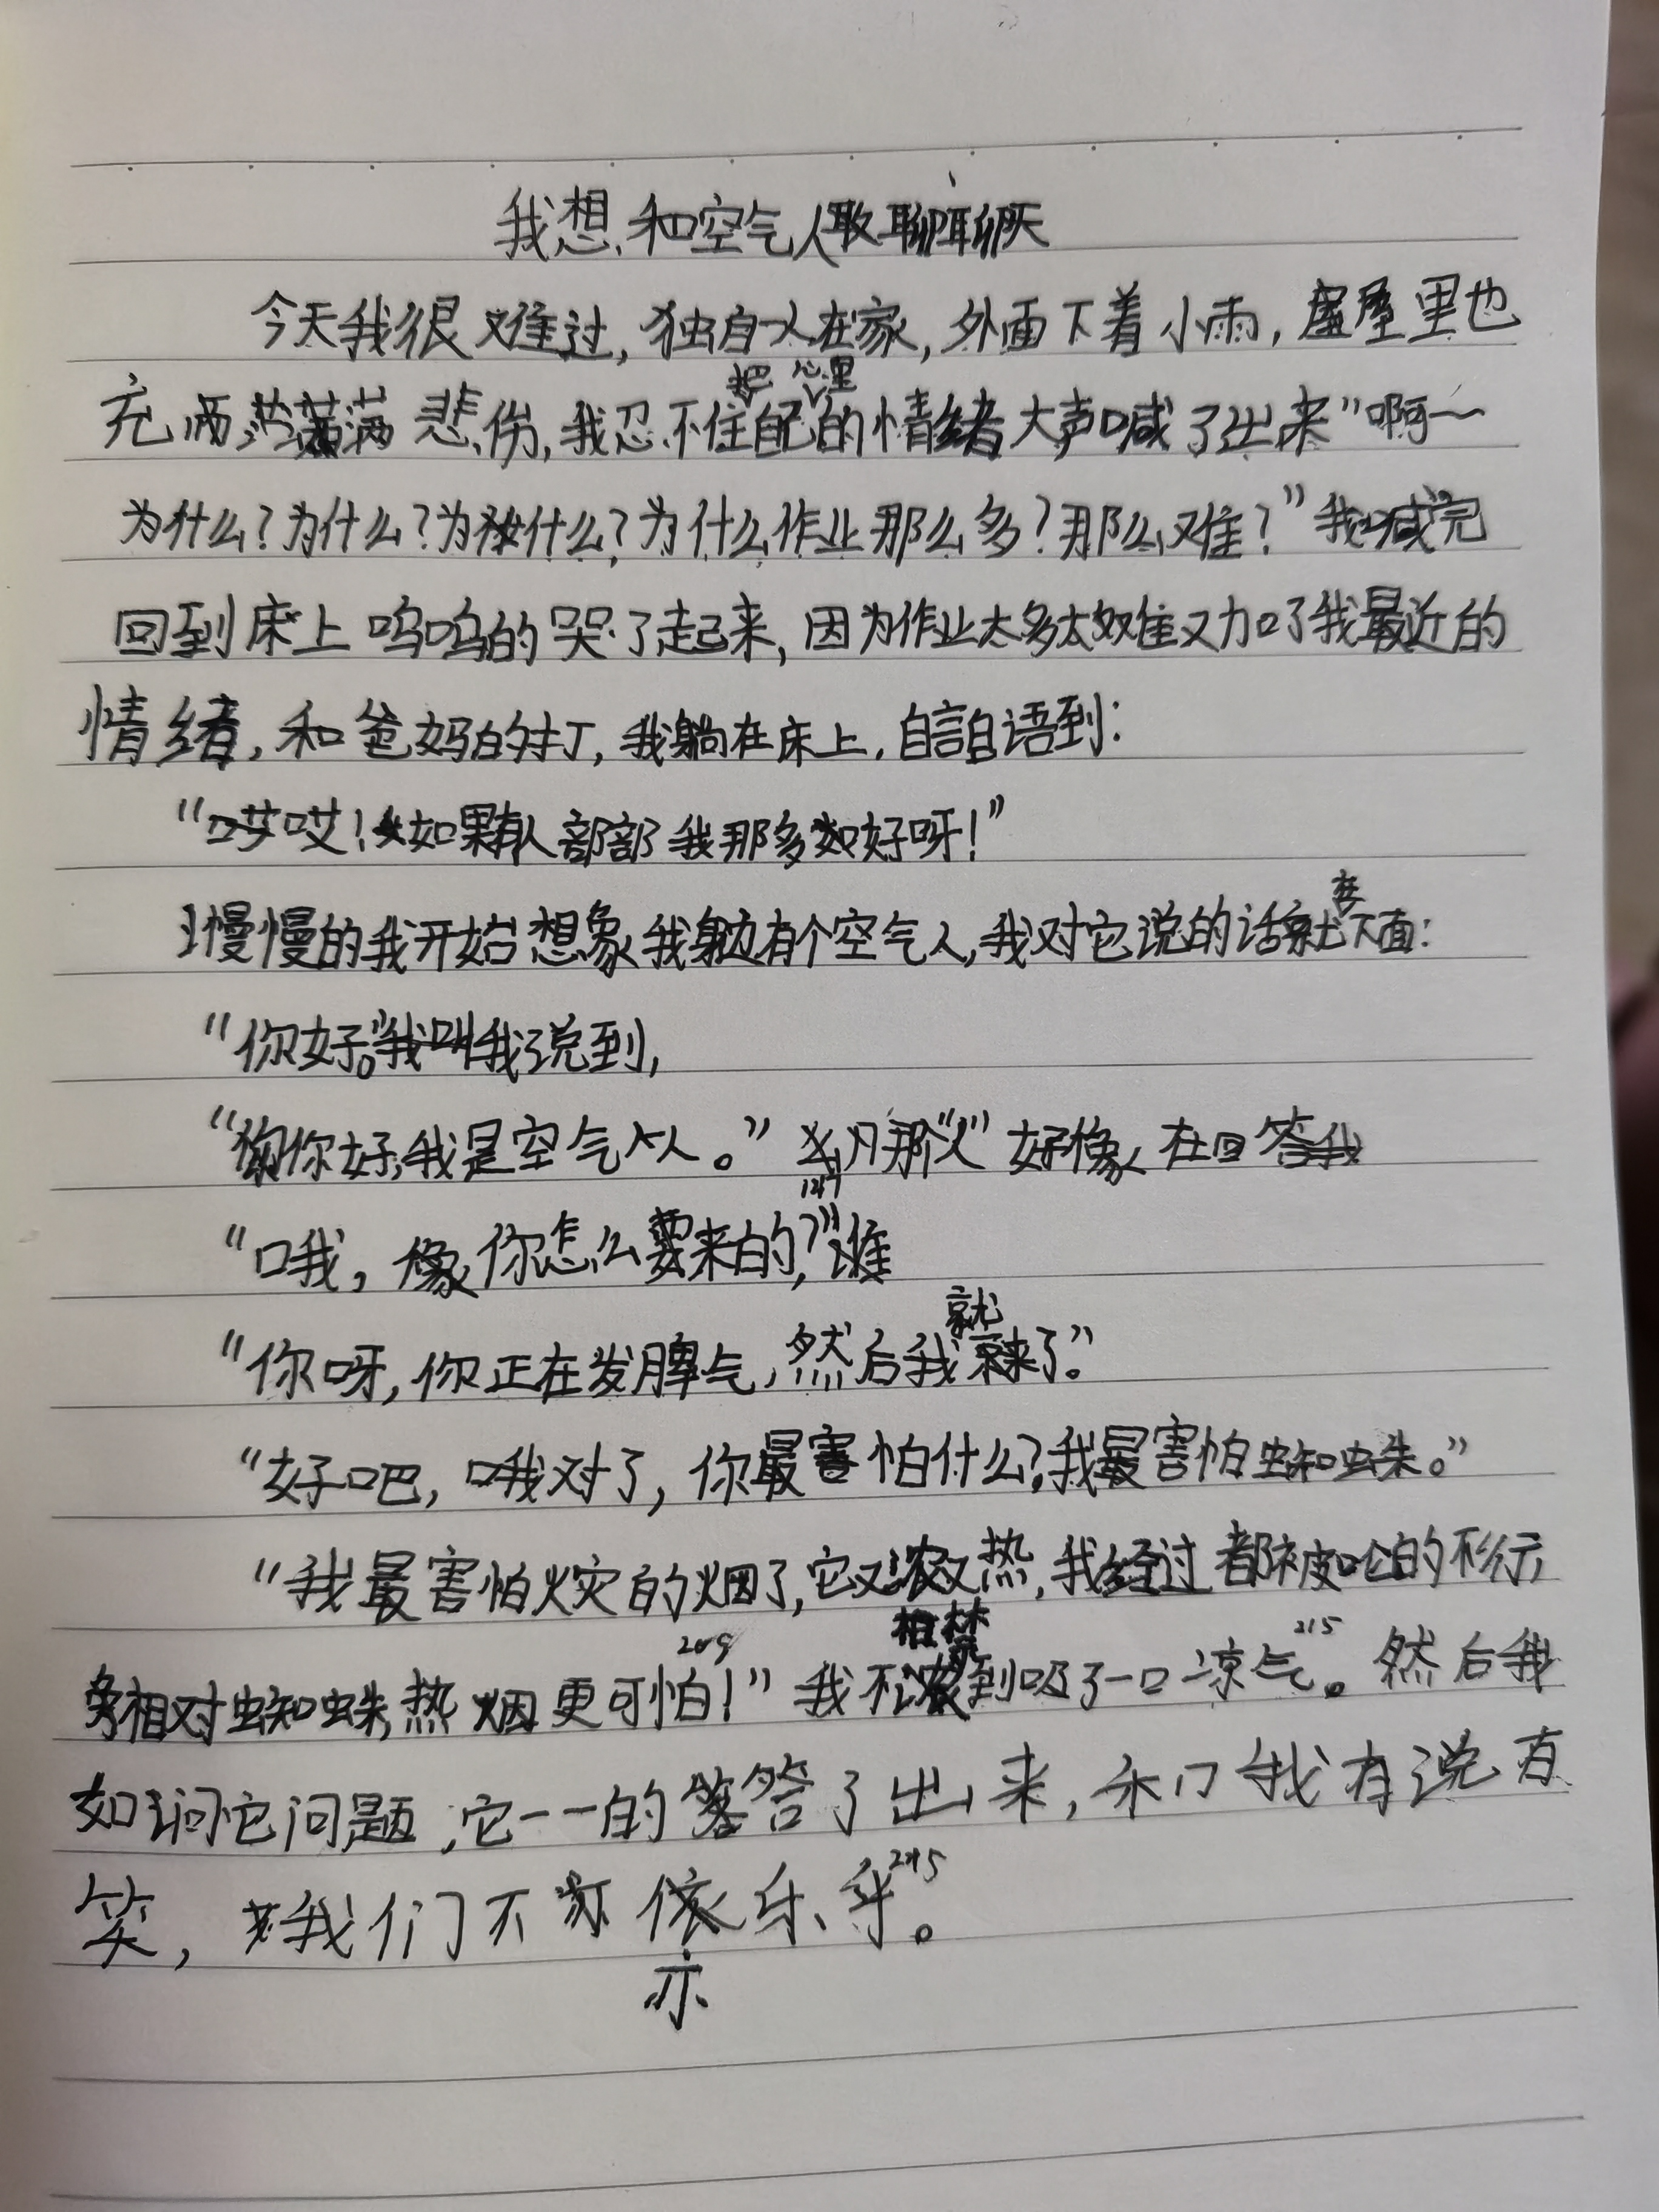 我想和空气人聊聊天
今天我很难过，独自一人在家，外面下着小雨，屋里也
充满悲伤，我忍不住把自己心里的情绪大声喊了出来“啊～
为什么？为什么？为什么？为什么作业那么多？那么难？”我喊完
回到床上呜呜的哭了起来，因为作业太多太难又加了我最近的
情绪，和爸妈的打，我躺在床上，自言自语到：
“哎！如果有人部部我那多好呀！”
慢慢的我开始想象我身边有个空气人，我对它说的话就在下面：
“你好。”我说到，
“你好，我是空气人。”那“人”好像在回答我
127
“哦，你怎么来的？”
“你呀，你正在发脾气，然后我就来了。”
“好吧，哦对了，你最害怕什么？我最害怕蜘蛛。”
“我最害怕火灾的烟了，它又浓又热，我经过都被呛的不行，
相对蜘蛛，热烟更可怕！”209 我不禁到吸了一口凉气。215 然后我
问它问题，它一一的答了出来，我有说有
笑，我们不亦乐乎。245